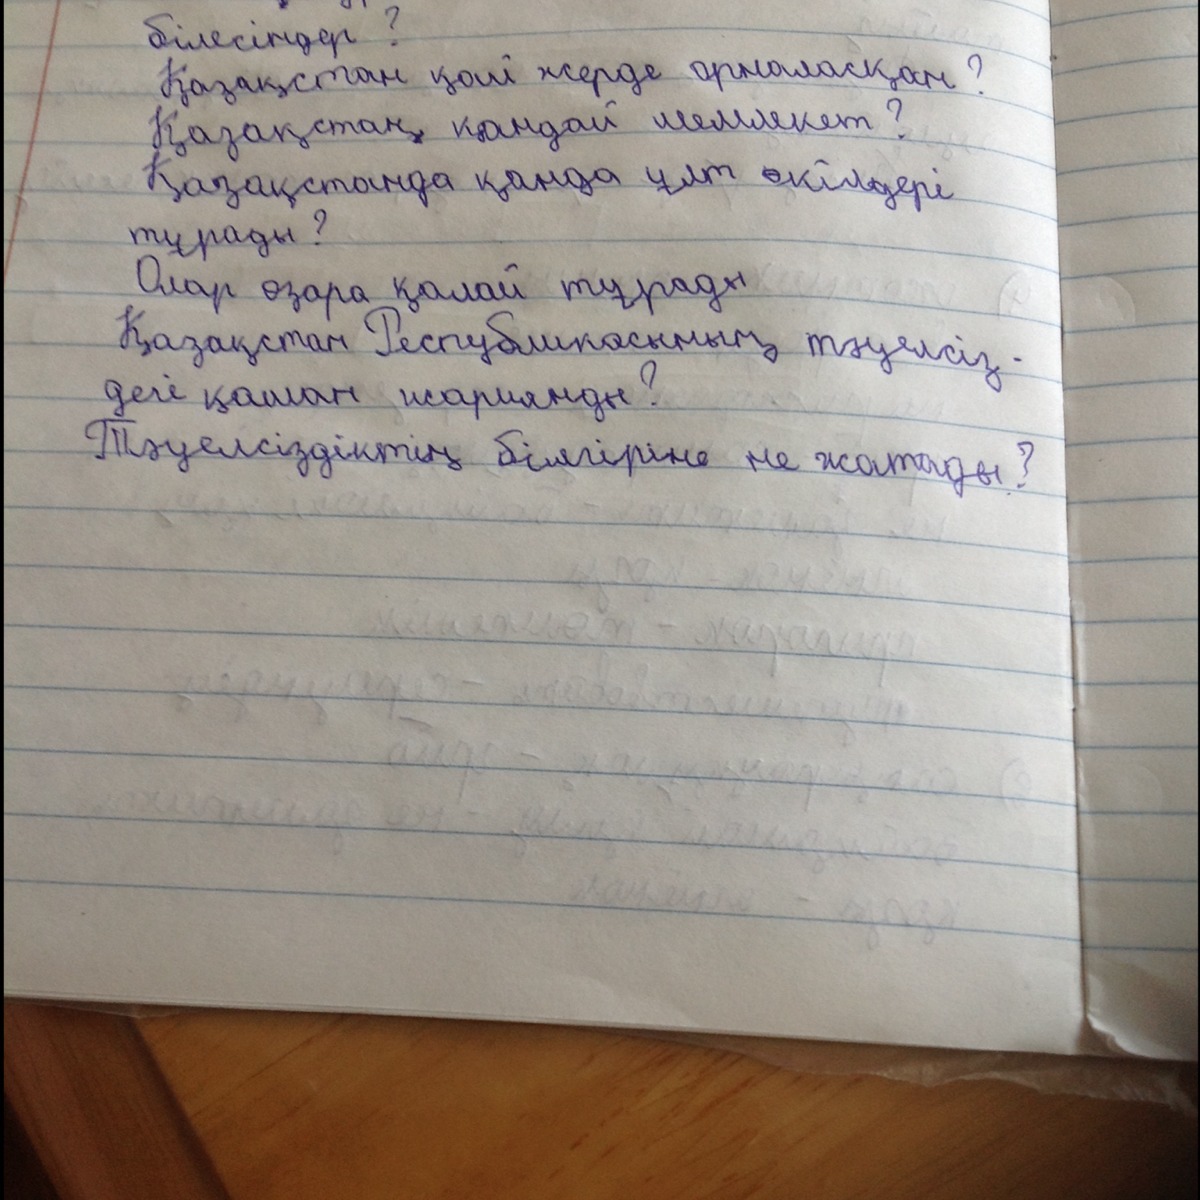 білесіңдер?
Қазақстан қай жерде орналасқан?
Қазақстан қандай мемлекет?
Қазақстанда қанда ұлт өкілдері
тұрады?
Олар өзара қалай тұрады
Қазақстан Республикасының тәуелсіз-
дегі қашан жариянды?
Тәуелсіздіктің білгіріне не жатады?